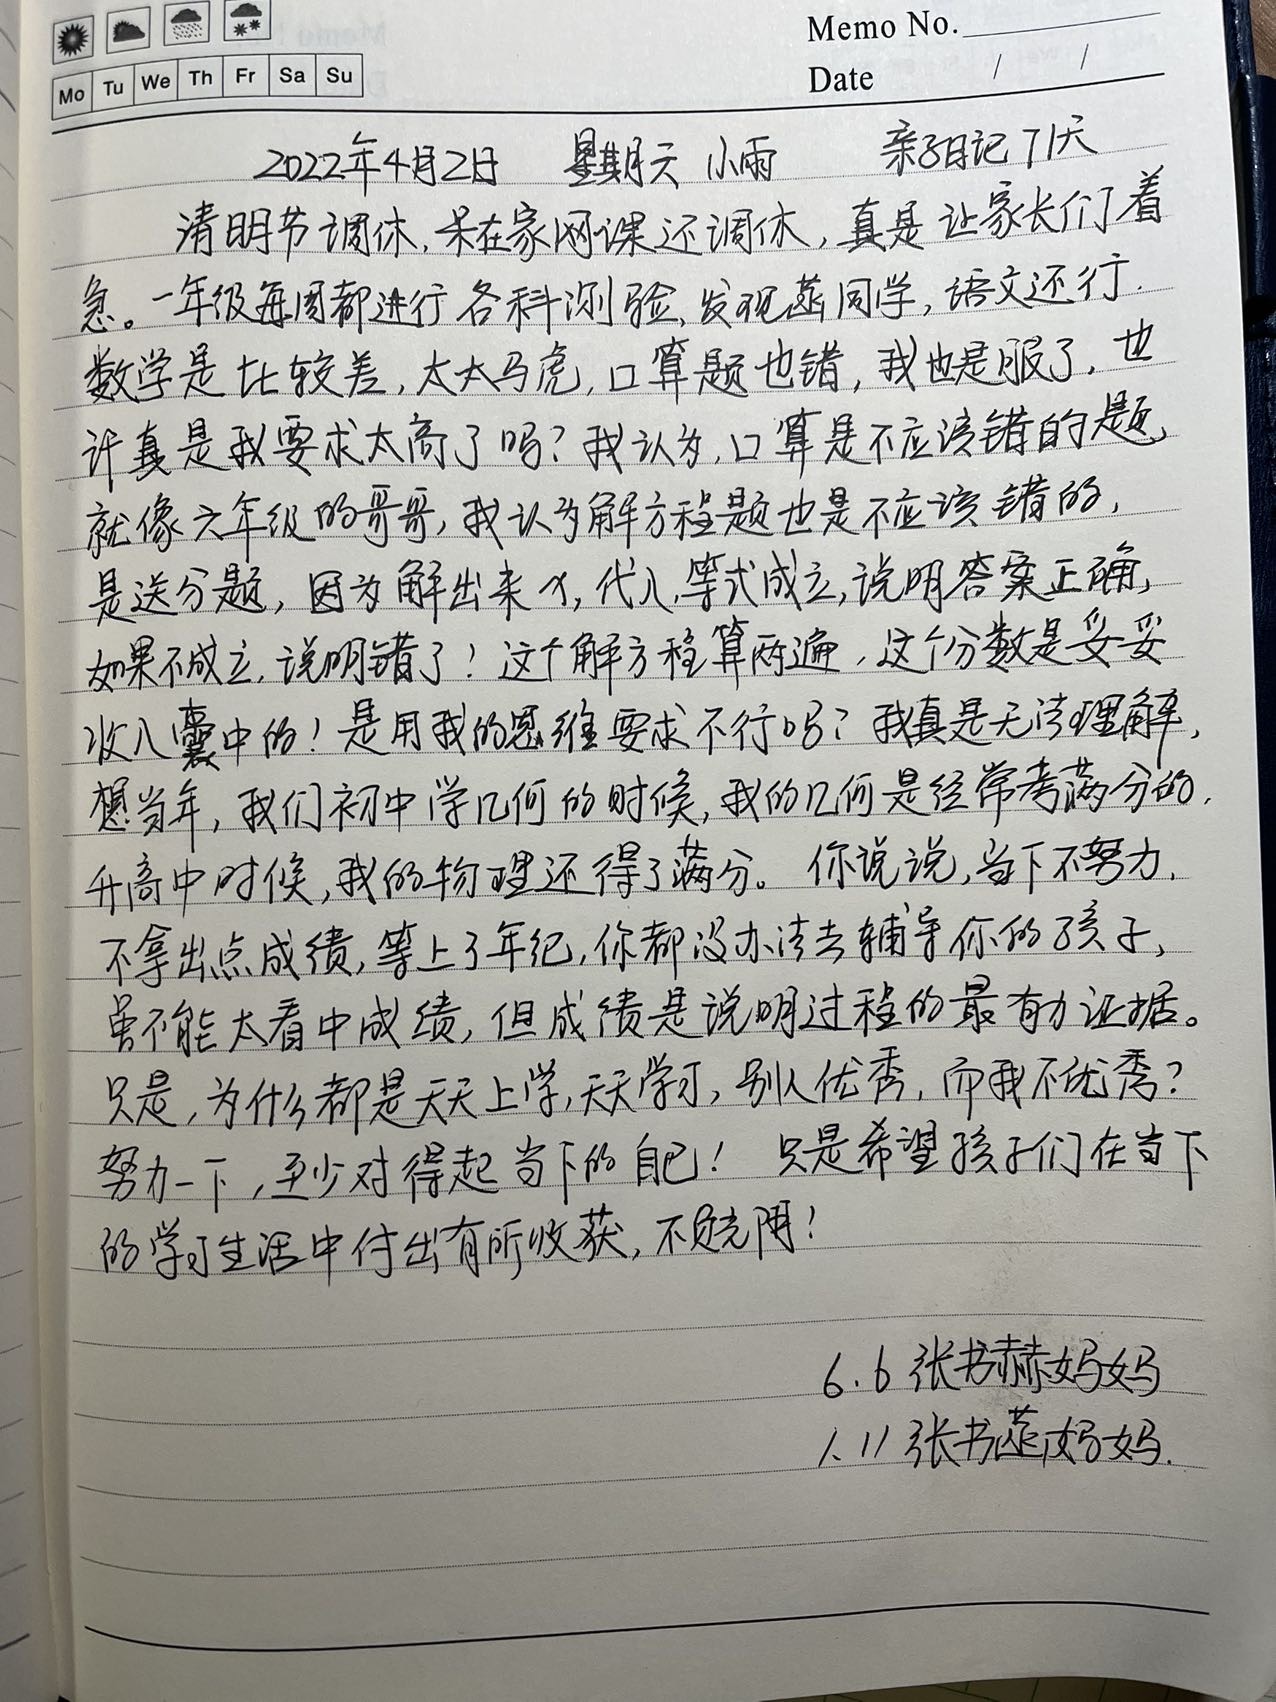 Memo No.
Mo Tu We Th Fr Sa Su
Date / /
2022年4月2日 星期六 小雨 亲子日记71天
清明节调休,呆在家网课还调休,真是让家长们着
急。一年级每周都进行各科测验,发现菡同学,语文还行.
数学是比较差,太太马虎,口算题也错,我也是服了,也
许真是我要求太高了吗?我认为,口算是不应该错的题,
就像六年级的哥哥,我认为解方程题也是不应该错的,
是送分题,因为解出来x,代入,等式成立,说明答案正确,
如果不成立,说明错了!这个解方程算两遍,这个分数是妥妥
收入囊中的!是用我的思维要求不行吗?我真是无法理解,
想当年,我们初中学几何的时候,我的几何是经常考满分的,
升高中时候,我的物理还得了满分。你说说,当下不努力,
不拿出点成绩,等上了年纪,你都没办法去辅导你的孩子,
虽不能太看中成绩,但成绩是说明过程的最有力证据。
只是,为什么都是天天上学,天天学习,别人优秀,而我不优秀?
努力一下,至少对得起当下的自己!只是希望孩子们在当下
的学习生活中付出有所收获,不负光阴!
6.6张书赫妈妈
1.11张书菡妈妈.